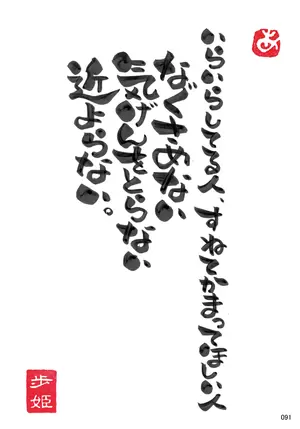 あ
いらいらしてる人、すねてかまってほしい人
なぐさめない
気げんをとらない
近よらない。
歩姫
091